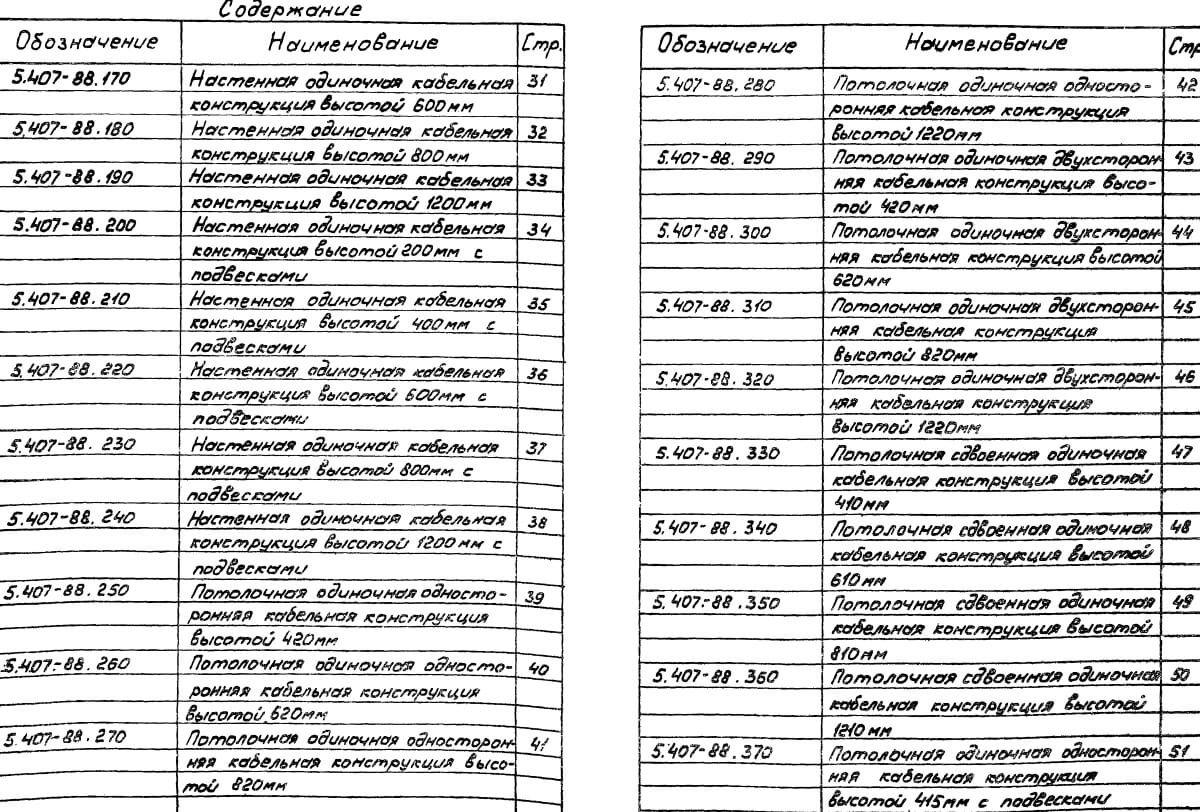 Содержание
Обозначение Наименование Стр.
5.407-88.170 Настенная одиночная кабельная 31
конструкция высотой 600мм
5.407-88.180 Настенная одиночная кабельная 32
конструкция высотой 800мм
5.407-88.190 Настенная одиночная кабельная 33
конструкция высотой 1200мм
5.407-88.200 Настенная одиночная кабельная 34
конструкция высотой 200мм с
подвесками
5.407-88.210 Настенная одиночная кабельная 35
конструкция высотой 400мм с
подвесками
5.407-88.220 Настенная одиночная кабельная 36
конструкция высотой 600мм с
подвесками
5.407-88.230 Настенная одиночная кабельная 37
конструкция высотой 800мм с
подвесками
5.407-88.240 Настенная одиночная кабельная 38
конструкция высотой 1200мм с
подвесками
5.407-88.250 Потолочная одиночная односто- 39
ронняя кабельная конструкция
высотой 420мм
5.407-88.260 Потолочная одиночная односто- 40
ронняя кабельная конструкция
высотой 620мм
5.407-88.270 Потолочная одиночная односторон- 41
няя кабельная конструкция высо-
той 820мм
Обозначение Наименование Стр
5.407-88.280 Потолочная одиночная односто- 42
ронняя кабельная конструкция
высотой 1220мм
5.407-88.290 Потолочная одиночная двухсторон- 43
няя кабельная конструкция высо-
той 420мм
5.407-88.300 Потолочная одиночная двухсторон- 44
няя кабельная конструкция высотой
620мм
5.407-88.310 Потолочная одиночная двухсторон- 45
няя кабельная конструкция
высотой 820мм
5.407-88.320 Потолочная одиночная двухсторон- 46
няя кабельная конструкция
высотой 1220мм
5.407-88.330 Потолочная сдвоенная одиночная 47
кабельная конструкция высотой
410мм
5.407-88.340 Потолочная сдвоенная одиночная 48
кабельная конструкция высотой
610мм
5.407-88.350 Потолочная сдвоенная одиночная 49
кабельная конструкция высотой
810мм
5.407-88.360 Потолочная сдвоенная одиночная 50
кабельная конструкция высотой
1210мм
5.407-88.370 Потолочная одиночная односторон- 51
няя кабельная конструкция
высотой 415мм с подвесками